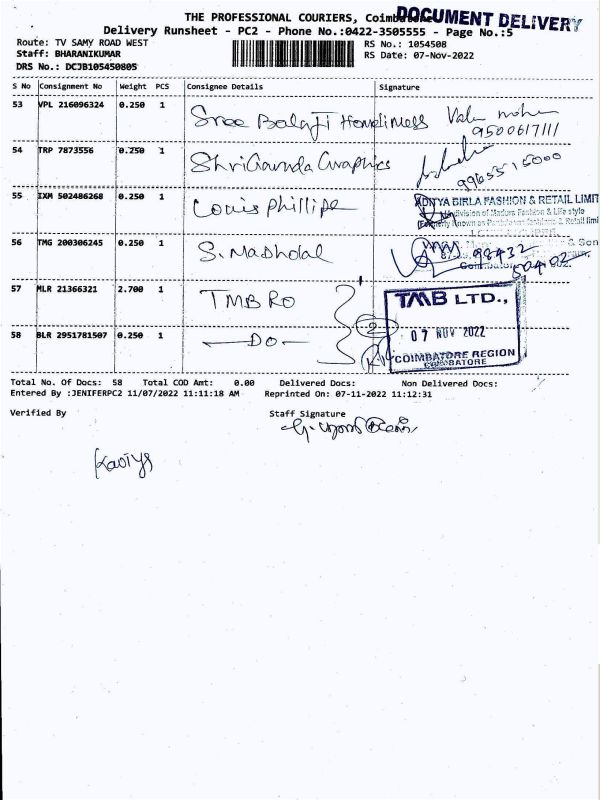 THE PROFESSIONAL COURIERS, Coimbatore
DOCUMENT DELIVERY
Delivery Runsheet - PC2 - Phone No.:0422-3505555 - Page No.:5
Route: TV SAMY ROAD WEST
RS No.: 1054508
Staff: BHARANIKUMAR
RS Date: 07-Nov-2022
DRS No.: DCJB105450805
S No Consignment No Weight PCS Consignee Details Signature
53 VPL 216096324 0.250 1 Sree Balaji Homeliness
9500617111
54 TRP 7873556 0.250 1 Shri Gowda Graphics
9965515000
55 IXM 502486268 0.250 1 Louis Phillipe
ADITYA BIRLA FASHION & RETAIL LIMIT
division of Madura Fashion & Life style
56 TMG 200306245 0.250 1 S. Madhalal
& Son
98432
50402
57 MLR 21366321 2.700 1 TMB RO
2
TMB LTD.,
07 NOV 2022
COIMBATORE REGION
COIMBATORE
58 BLR 2951781507 0.250 1 —DO—
Total No. Of Docs: 58 Total COD Amt: 0.00 Delivered Docs: Non Delivered Docs:
Entered By :JENIFERPC2 11/07/2022 11:11:18 AM Reprinted On: 07-11-2022 11:12:31
Verified By Staff Signature
Kaviya